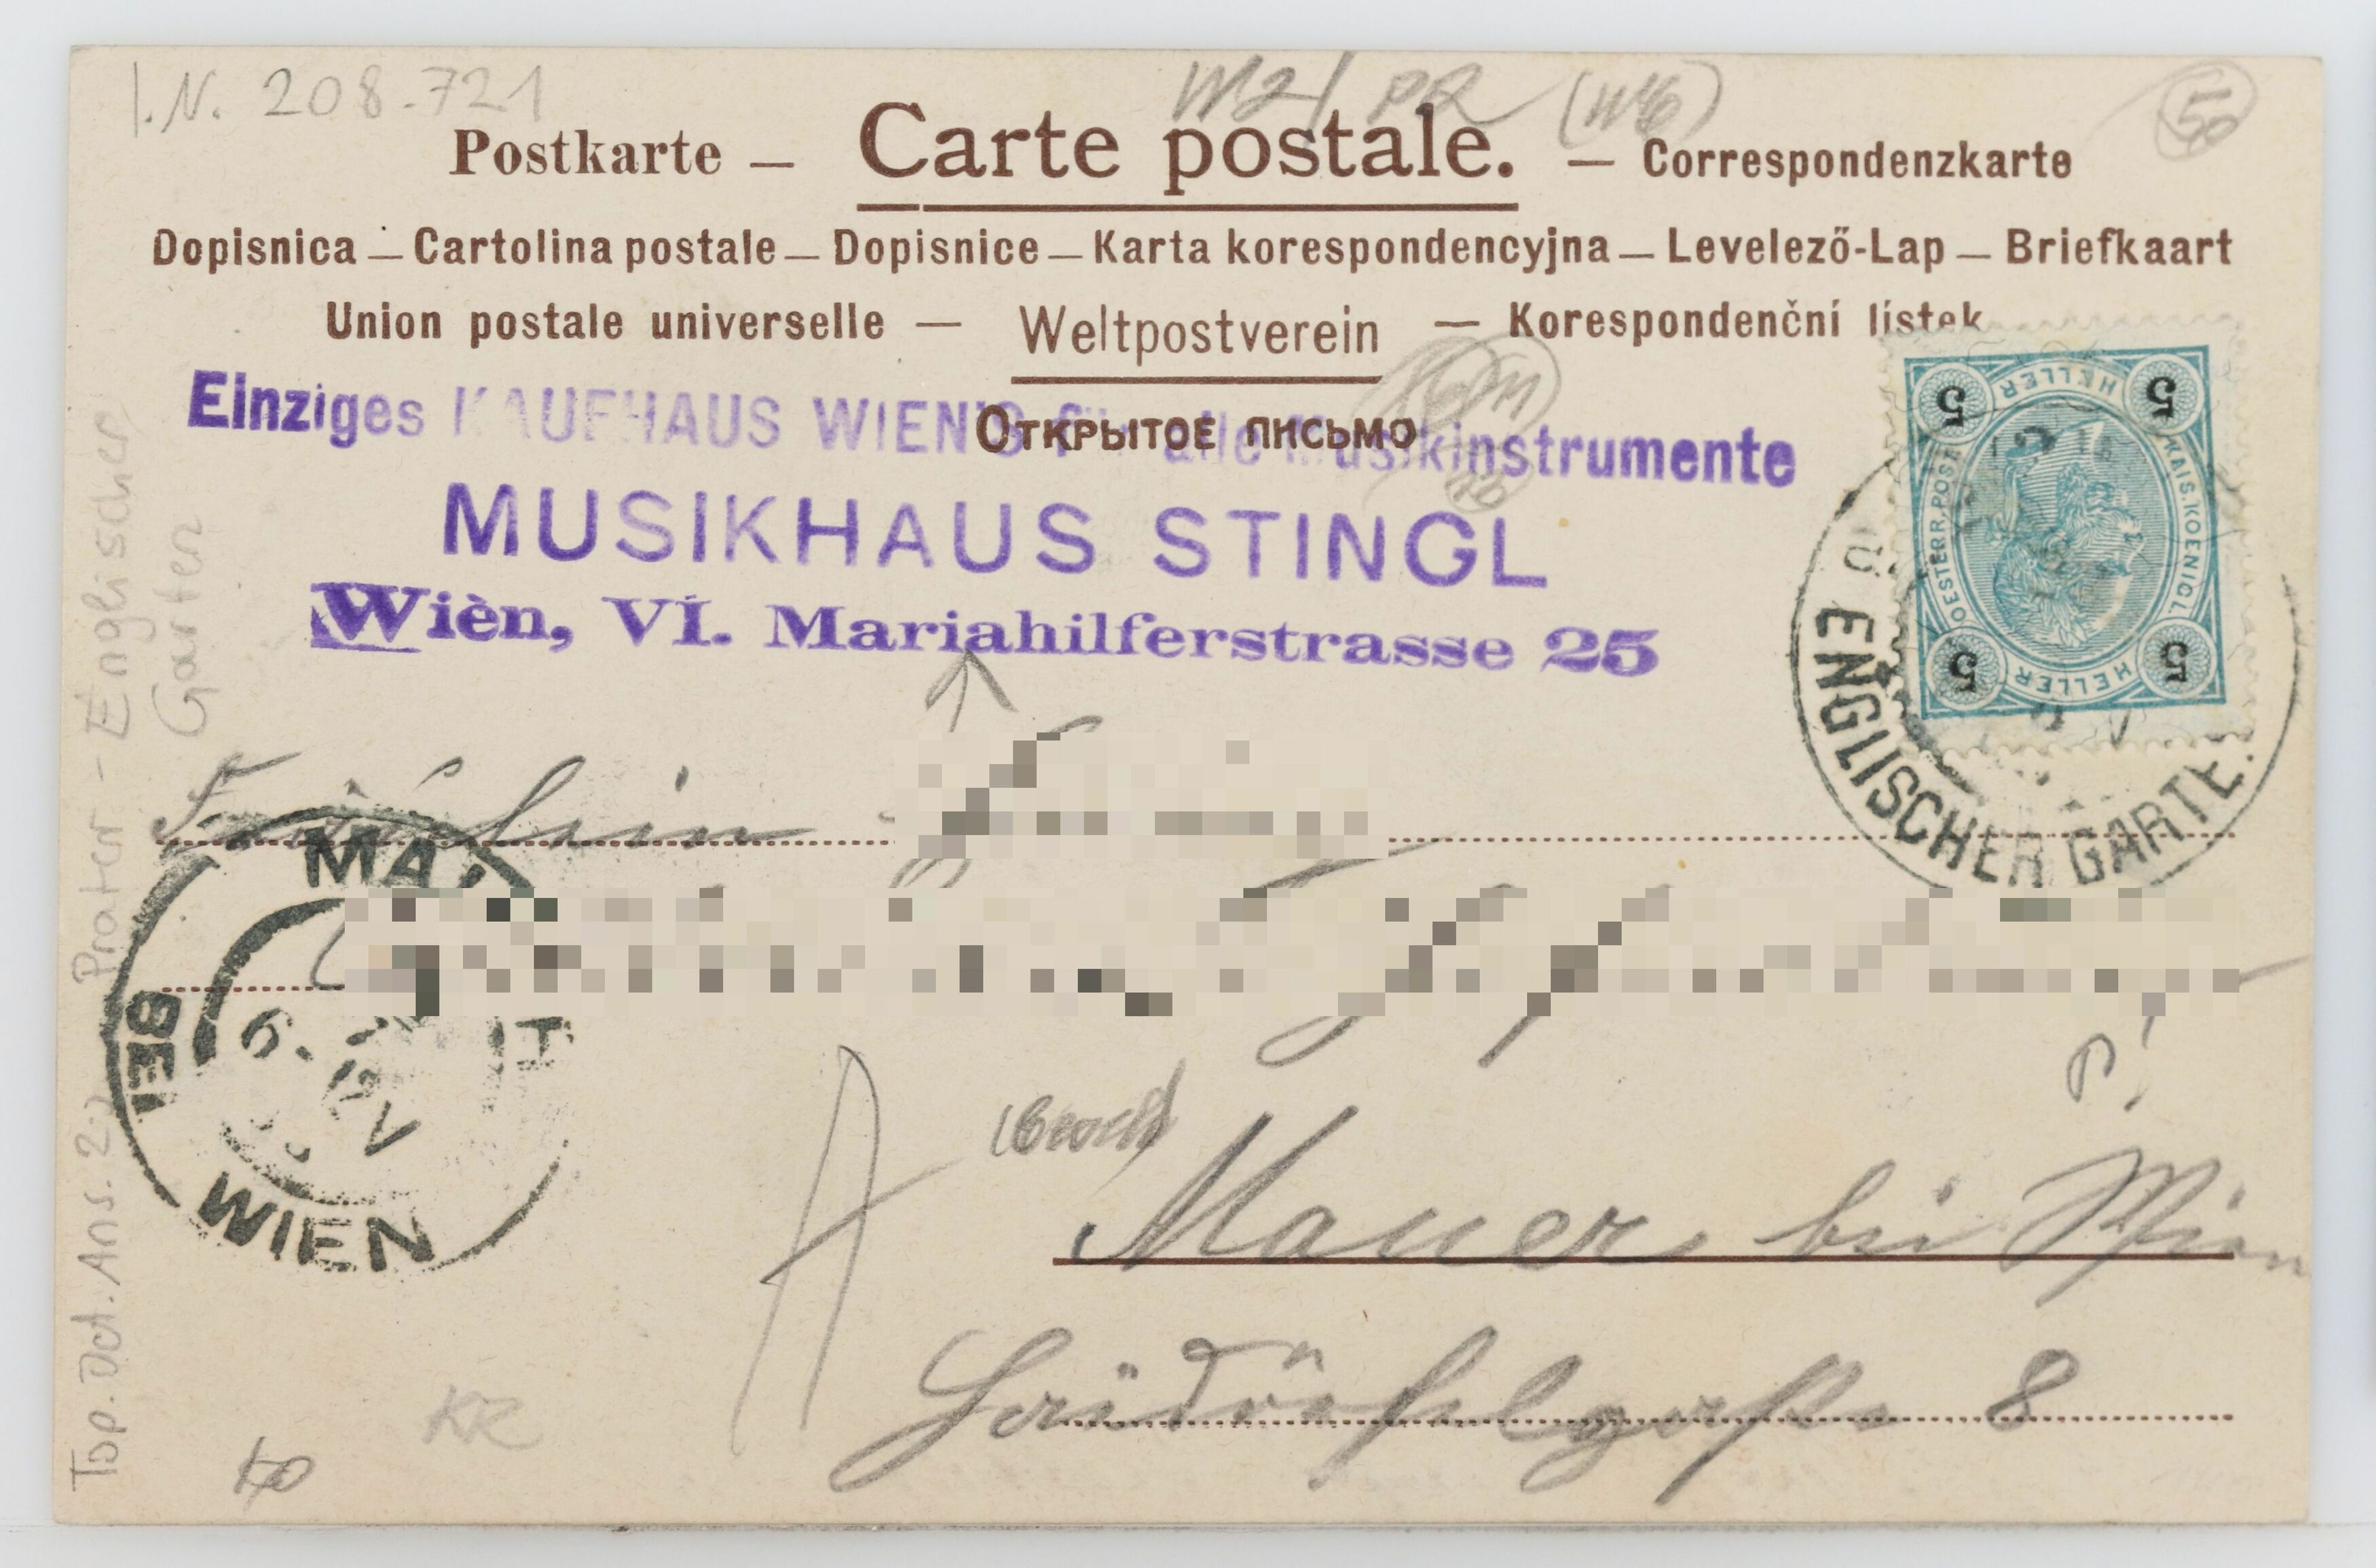 I.N. 208.721
50
Postkarte — Carte postale. — Correspondenzkarte
Dopisnica — Cartolina postale — Dopisnice — Karta korespondencyjna — Levelező-Lap — Briefkaart
Union postale universelle — Weltpostverein — Korespondenční lístek
Открытое письмо
Einziges KAUFHAUS WIEN'S für alle Musikinstrumente
MUSIKHAUS STINGL
Wien, VI. Mariahilferstrasse 25
5 HELLER 5
KAIS. KOENIGL. OESTERR. POST
5 HELLER 5
ENGLISCHER GARTE
Fräulein
MA
BEI
WIEN
6. IV
Mauer bei Wien
8
KR
Top. Dok. Ans. 2. Prater - Englischer
Garten